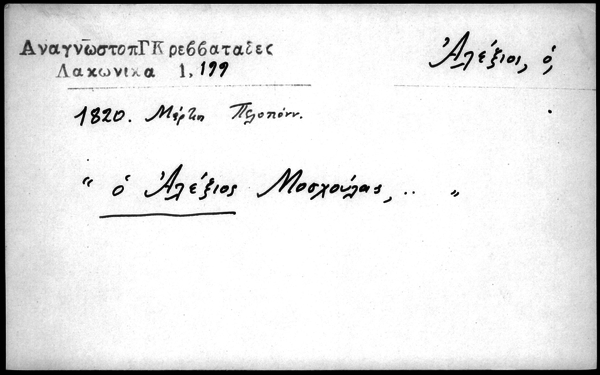 ΑναγνωστοπΓΚρεββαταδες
Λακωνικα 1, 199
Ἀλέξιος, ὁ,
1820. Μέρτη Πελοπόνν.
" ὁ Ἀλέξιος Μοσχούλας, .. "